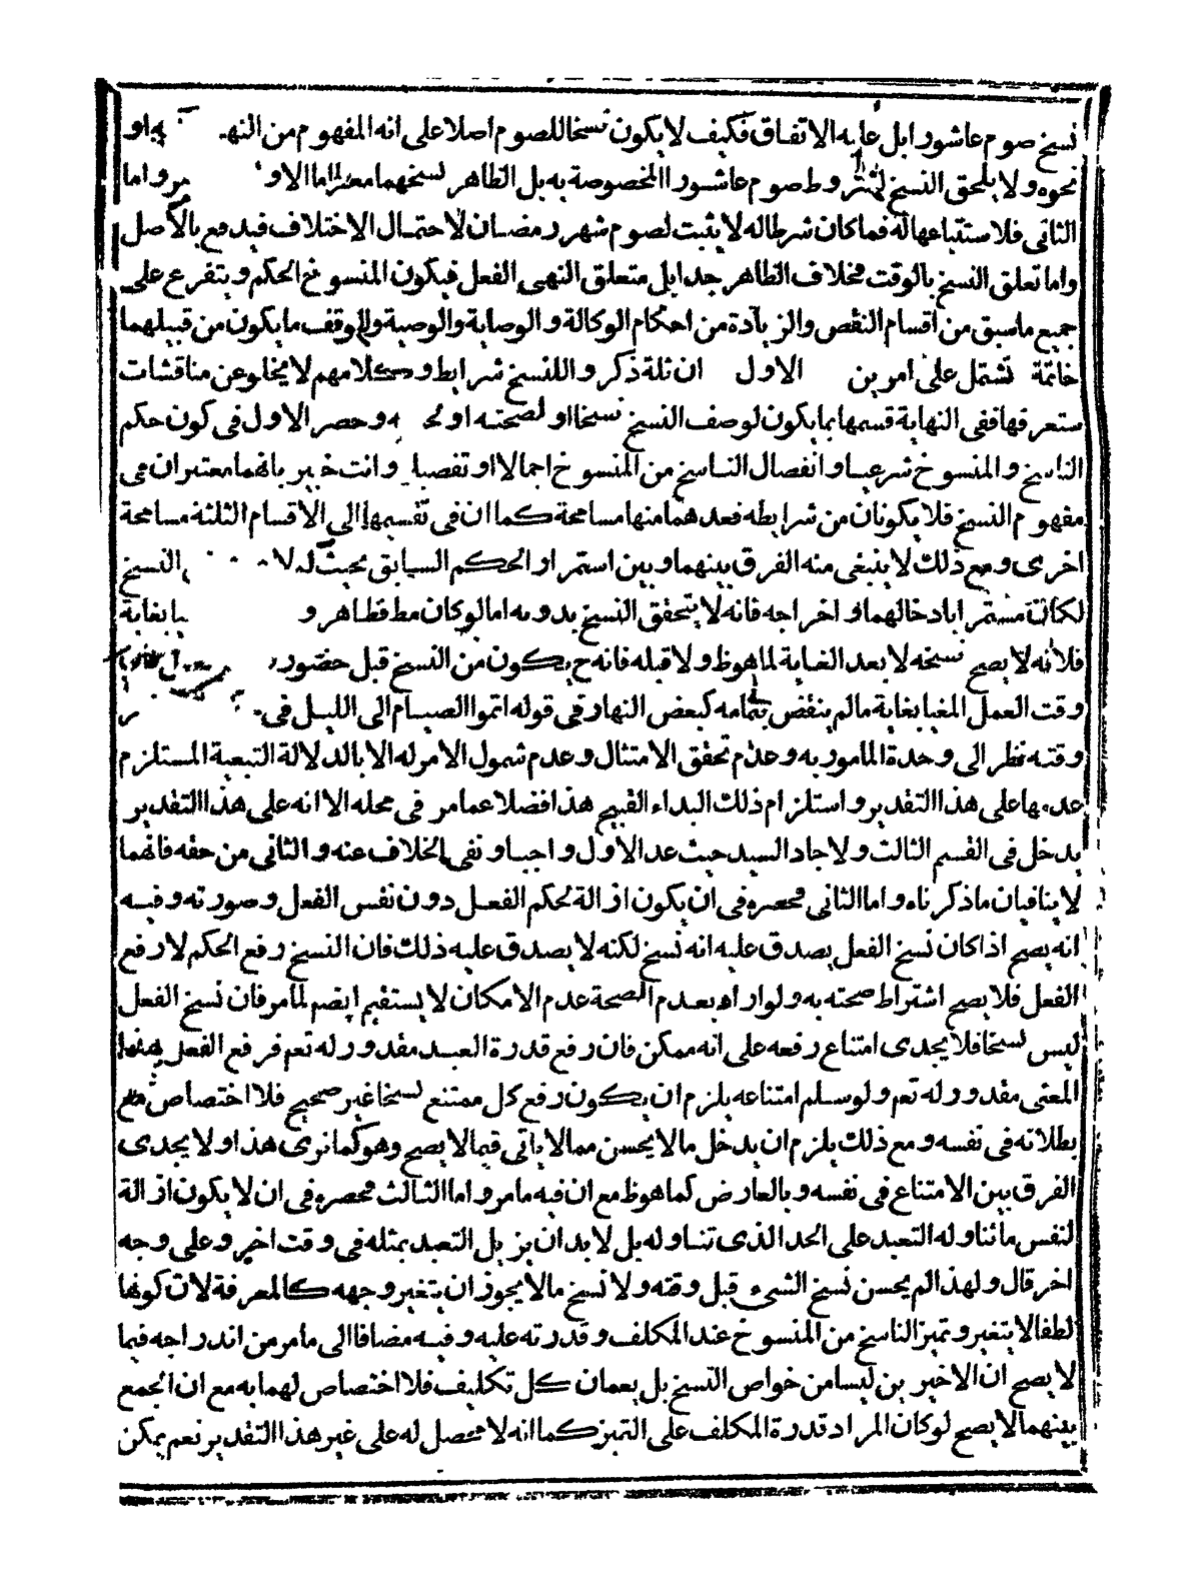 نسخ صوم عاشورا بل عليه الاتفاق فكيف لا يكون نسخا للصوم اصلا على انه المفهوم من النهـ به او
نحوه ولا يلحق النسخ لشروط صوم عاشورا المخصوصة به بل الظاهر نسخهما معه اما الاو واما
الثانى فلاستتباعها له فما كان شرطا له لا يثبت لصوم شهر رمضان لاحتمال الاختلاف فيدفع بالأصل
واما تعلق النسخ بالوقت فخلاف الظاهر جدا بل متعلق النهى الفعل فيكون المنسوخ الحكم ويتفرع على
جميع ماسبق من اقسام النقص والزيادة من احكام الوكالة والوصاية والوصية والوقف ما يكون من قبيلهما
خاتمة تشتمل على امرين الاول ان ثلة ذكروا للنسخ شرايط وكلامهم لا يخلو عن مناقشات
ستعرفها ففى النهاية قسمها بما يكون لوصف النسخ نسخا او لصحته او لحـ ـه وحصر الاول فى كون حكم
الناسخ والمنسوخ شرعيا وانفصال الناسخ من المنسوخ اجمالا او تفصيلا وانت خبير بانهما معتبران فى
مفهوم النسخ فلا يكونان من شرايطه فعدهما منها مسامحة كما ان فى تقسيمها الى الاقسام الثلثة مسامحة
اخرى ومع ذلك لا ينبغى منه الفرق بينهما وبين استمرار الحكم السابق بحيث لولا النسخ
لكان مستمرا بادخالهما واخراجه فانه لا يتحقق النسخ بدونه اما لو كان مط فظاهر و يا بغاية
فلانه لا يصح نسخه لا بعد الغاية لما هو ظ ولا قبله فانه ح يكون من النسخ قبل حضور
وقت العمل المغيا بغاية مالم ينقض بتمامه كبعض النهار فى قوله اتموا الصيام الى الليل فى
وقته نظر الى وحدة المامور به وعدم تحقق الامتثال وعدم شمول الامر له الا بالدلالة التبعية المستلزم
عدمها على هذا التقدير واستلزام ذلك البداء القبيح هذا فضلا عما مر فى محله الا انه على هذا التقدير
يدخل فى القسم الثالث ولاجاد السيد حيث عد الاول واجبا ونفى الخلاف عنه والثانى من حقه فانهما
لا ينافيان ما ذكرناه واما الثانى فحصره فى ان يكون ازالة لحكم الفعل دون نفس الفعل وصورته وفيه
انه يصح اذا كان نسخ الفعل يصدق عليه انه نسخ لكنه لا يصدق عليه ذلك فان النسخ رفع الحكم لا رفع
الفعل فلا يصح اشتراط صحته به ولو اراد بعدم الصحة عدم الامكان لا يستقيم ايضم لما مر فان نسخ الفعل
ليس نسخا فلا يجدى امتناع رفعه على انه ممكن فان رفع قدرة العبد مقدور له تعم فرفع الفعل بهذا
المعنى مقدور له تعم ولو سلم امتناعه يلزم ان يكون رفع كل ممتنع نسخا غير صحيح فلا اختصاص مع
بطلانه فى نفسه ومع ذلك يلزم ان يدخل ما لا يحسن مما لا ياتى فيما لا يصح وهو كما نرى هذا ولا يجدى
الفرق بين الامتناع فى نفسه وبالعارض كما هو ظ مع ان فيه ما مر واما الثالث فحصره فى ان لا يكون ازالة
لنفس ما تناوله التعبد على الحد الذى تناوله بل لا بد ان يزيل التعبد بمثله فى وقت اخر وعلى وجه
اخر قال ولهذا لم يحسن نسخ الشىء قبل وقته ولا نسخ ما لا يجوز ان يتغير وجهه كالمعرفة لان كونها
لطفا لا يتغير وتميز الناسخ من المنسوخ عند المكلف وقدرته عليه وفيه مضافا الى ما مر من اندراجه فيما
لا يصح ان الاخيرين ليسا من خواص النسخ بل يعمان كل تكليف فلا اختصاص لهما به مع ان الجمع
بينهما لا يصح لو كان المراد قدرة المكلف على التميز كما انه لا محصل له على غير هذا التقدير نعم يمكن